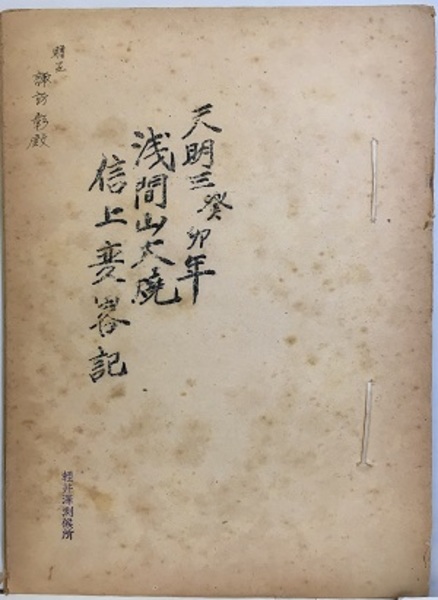 天明三癸卯年
浅間山大焼
信上変記
贈呈
諏訪彰殿
軽井澤測候所